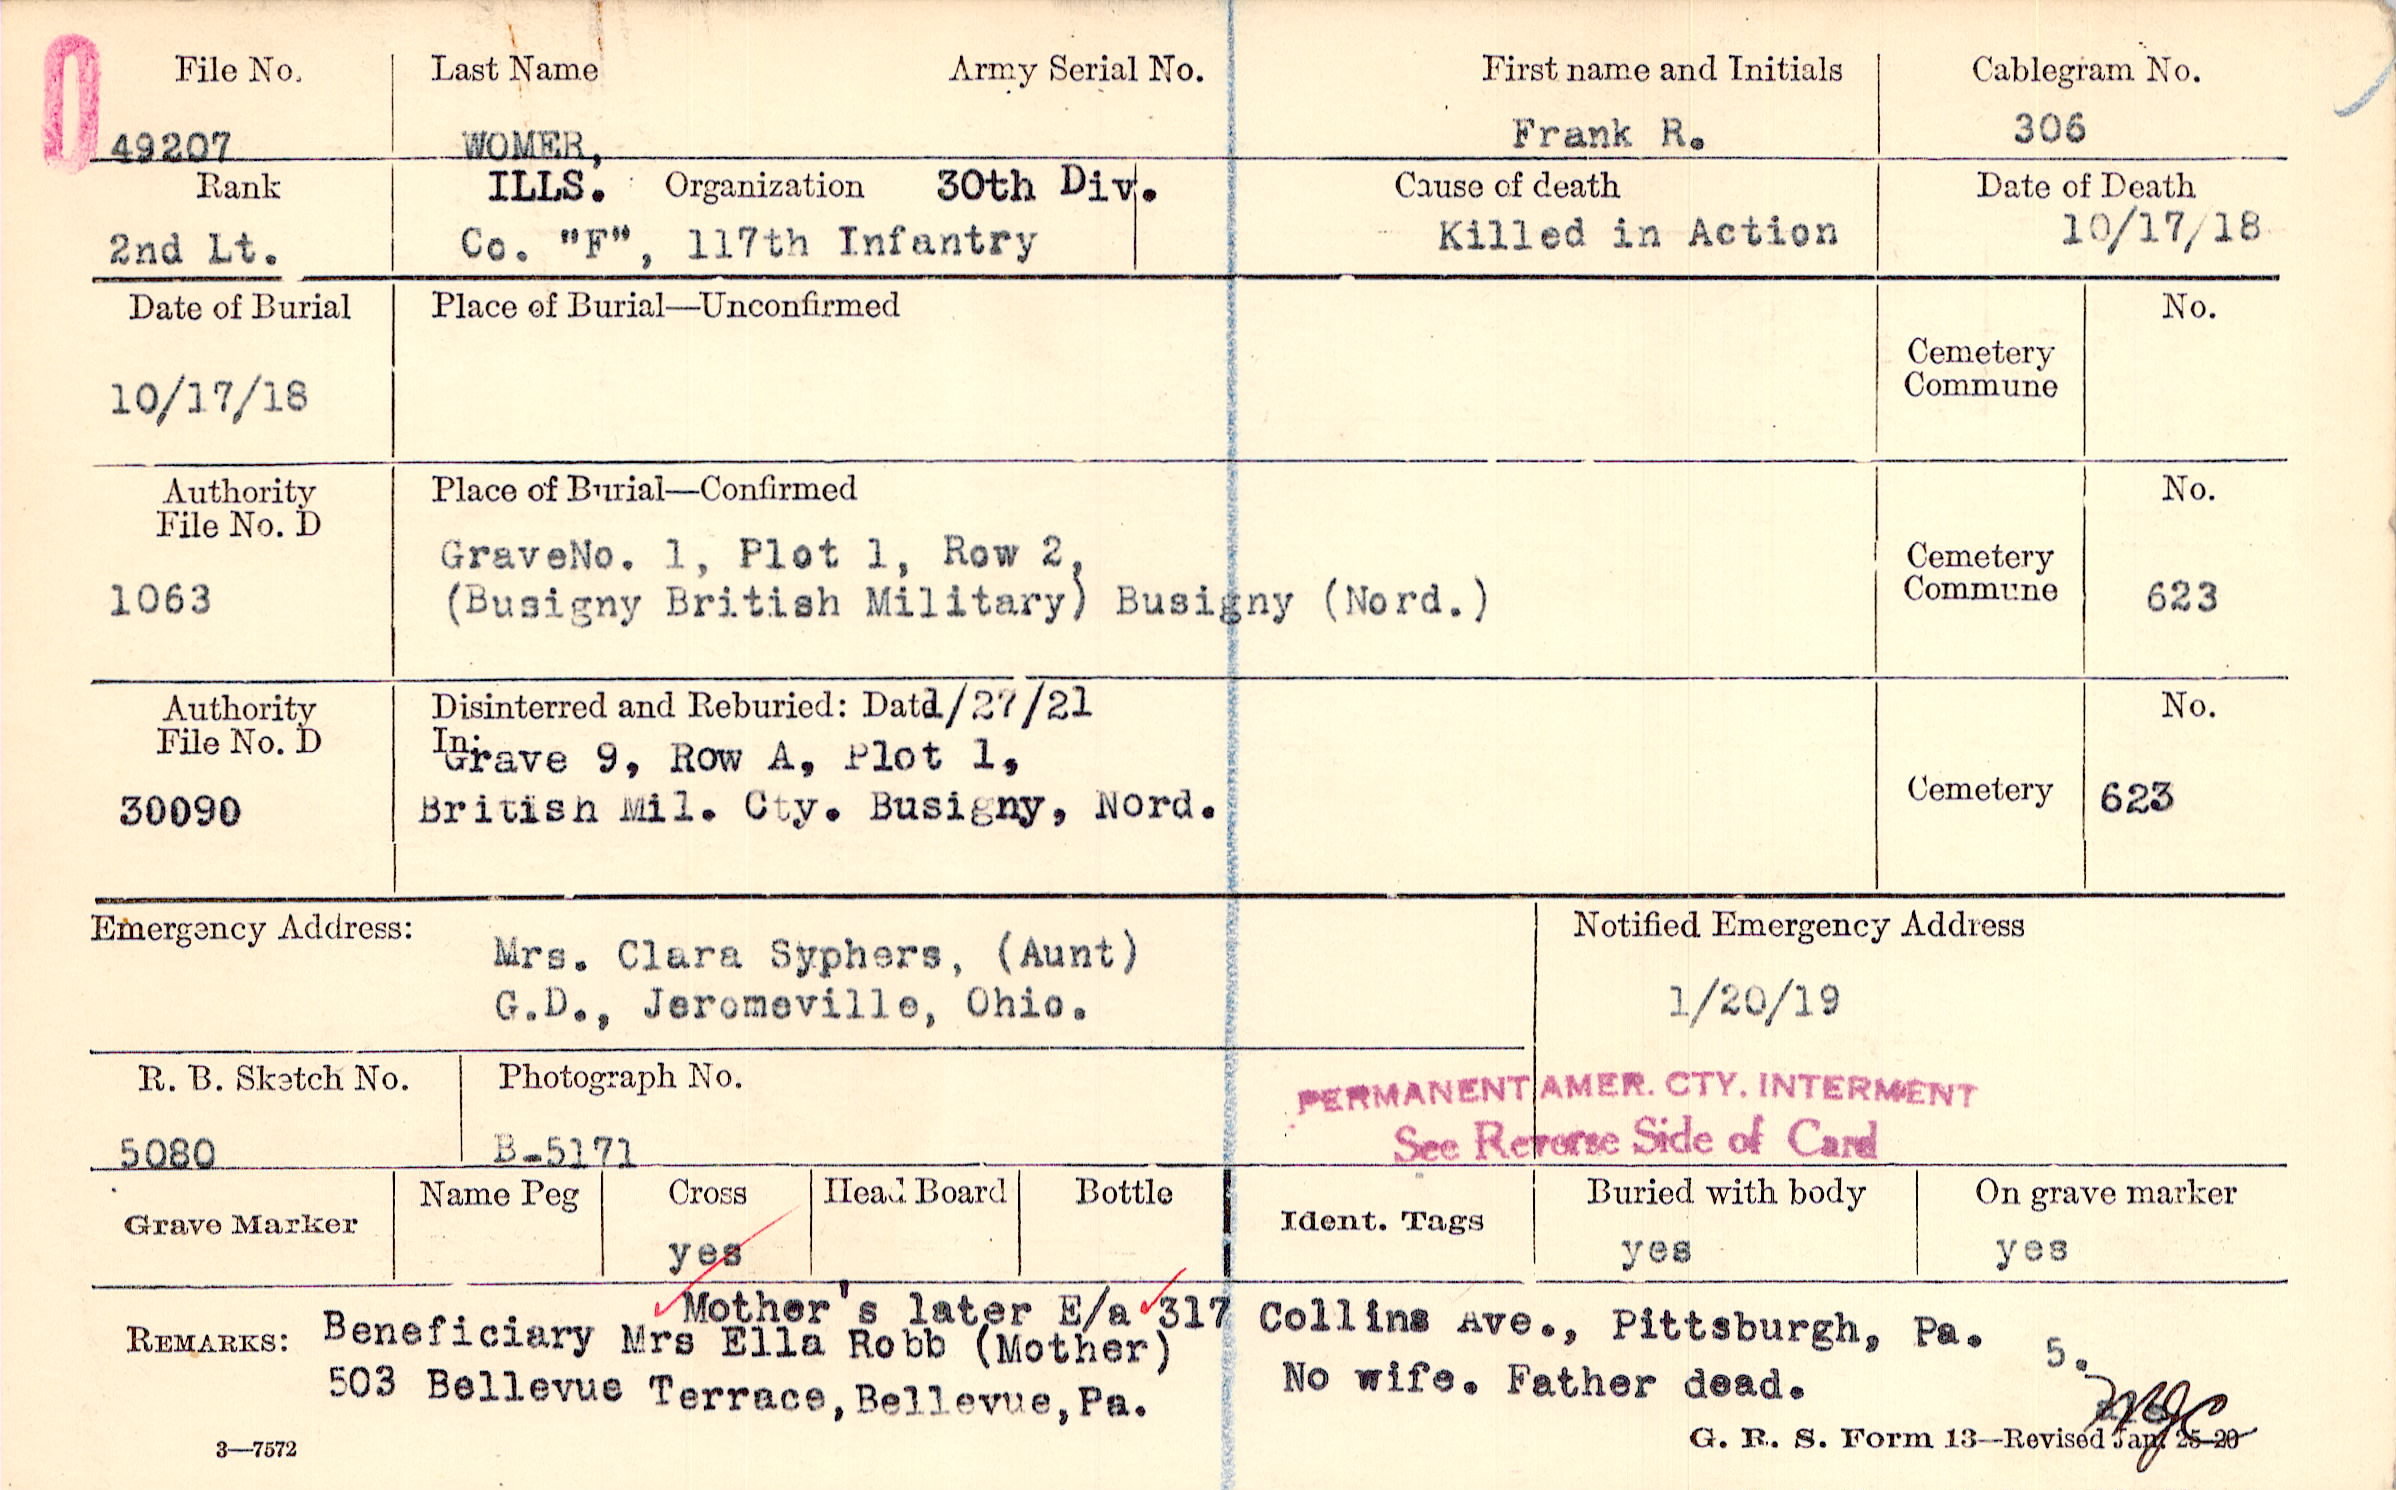 File No. Last Name Army Serial No. First name and Initials Cablegram No.
49207 WOMER, Frank R. 306
Rank ILLS. Organization 30th Div. Cause of death Date of Death
2nd Lt. Co. "F", 117th Infantry Killed in Action 10/17/18
Date of Burial Place of Burial—Unconfirmed No.
Cemetery
Commune
10/17/18
Authority Place of Burial—Confirmed No.
File No. D
GraveNo. 1, Plot 1, Row 2, Cemetery
1063 (Busigny British Military) Busigny (Nord.) Commune 623
Authority Disinterred and Reburied: Dat 1/27/21 No.
File No. D In:
Grave 9, Row A, Plot 1,
30090 British Mil. Cty. Busigny, Nord. Cemetery 623
Emergency Address: Notified Emergency Address
Mrs. Clara Syphers, (Aunt)
G.D., Jeromeville, Ohio. 1/20/19
R. B. Sketch No. Photograph No.
PERMANENT AMER. CTY. INTERMENT
5080 B-5171 See Reverse Side of Card
Name Peg Cross Head Board Bottle Buried with body On grave marker
Grave Marker Ident. Tags
yes yes yes
Mother's later E/a 317 Collins Ave., Pittsburgh, Pa.
REMARKS: Beneficiary Mrs Ella Robb (Mother) 5.
503 Bellevue Terrace, Bellevue, Pa. No wife. Father dead.
3—7572 G. R. S. Form 13—Revised Jan. 25-20